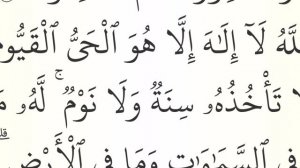 للَّهُ لَآ إِلَٰهَ إِلَّا هُوَ ٱلْحَىُّ ٱلْقَيُّوم
ا تَأْخُذُهُۥ سِنَةٌ وَلَا نَوْمٌ ۚ لَّهُۥ مَ
فِى ٱلسَّمَٰوَٰتِ وَمَا فِى ٱلْأَرْضِ